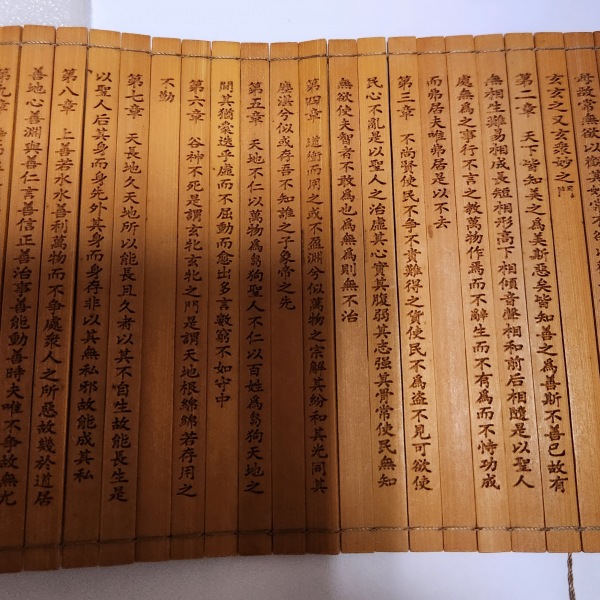 母故常無欲以
玄玄之又玄衆妙之門
第二章 天下皆知美之為美斯惡矣皆知善之為善斯不善已故有
無相生難易相成長短相形高下相傾音聲相和前后相隨是以聖人
處無為之事行不言之教萬物作焉而不辭生而不有為而不恃功成
而弗居夫唯弗居是以不去
第三章 不尚賢使民不爭不貴難得之貨使民不為盜不見可欲使
民心不亂是以聖人之治虛其心實其腹弱其志强其骨常使民無知
無欲使夫智者不敢為也為無為則無不治
第四章 道沖而用之或不盈淵兮似萬物之宗解其紛和其光同其
塵湛兮似或存吾不知誰之子象帝之先
第五章 天地不仁以萬物為芻狗聖人不仁以百姓為芻狗天地之
間其猶橐迭乎虛而不屈動而愈出多言數窮不如守中
第六章 谷神不死是謂玄牝玄牝之門是謂天地根綿綿若存用之
不勤
第七章 天長地久天地所以能長且久者以其不自生故能長生是
以聖人后其身而身先外其身而身存非以其無私邪故能成其私
第八章 上善若水水善利萬物而不爭處衆人之所惡故幾於道居
善地心善淵與善仁言善信正善治事善能動善時夫唯不爭故無尤
第九章